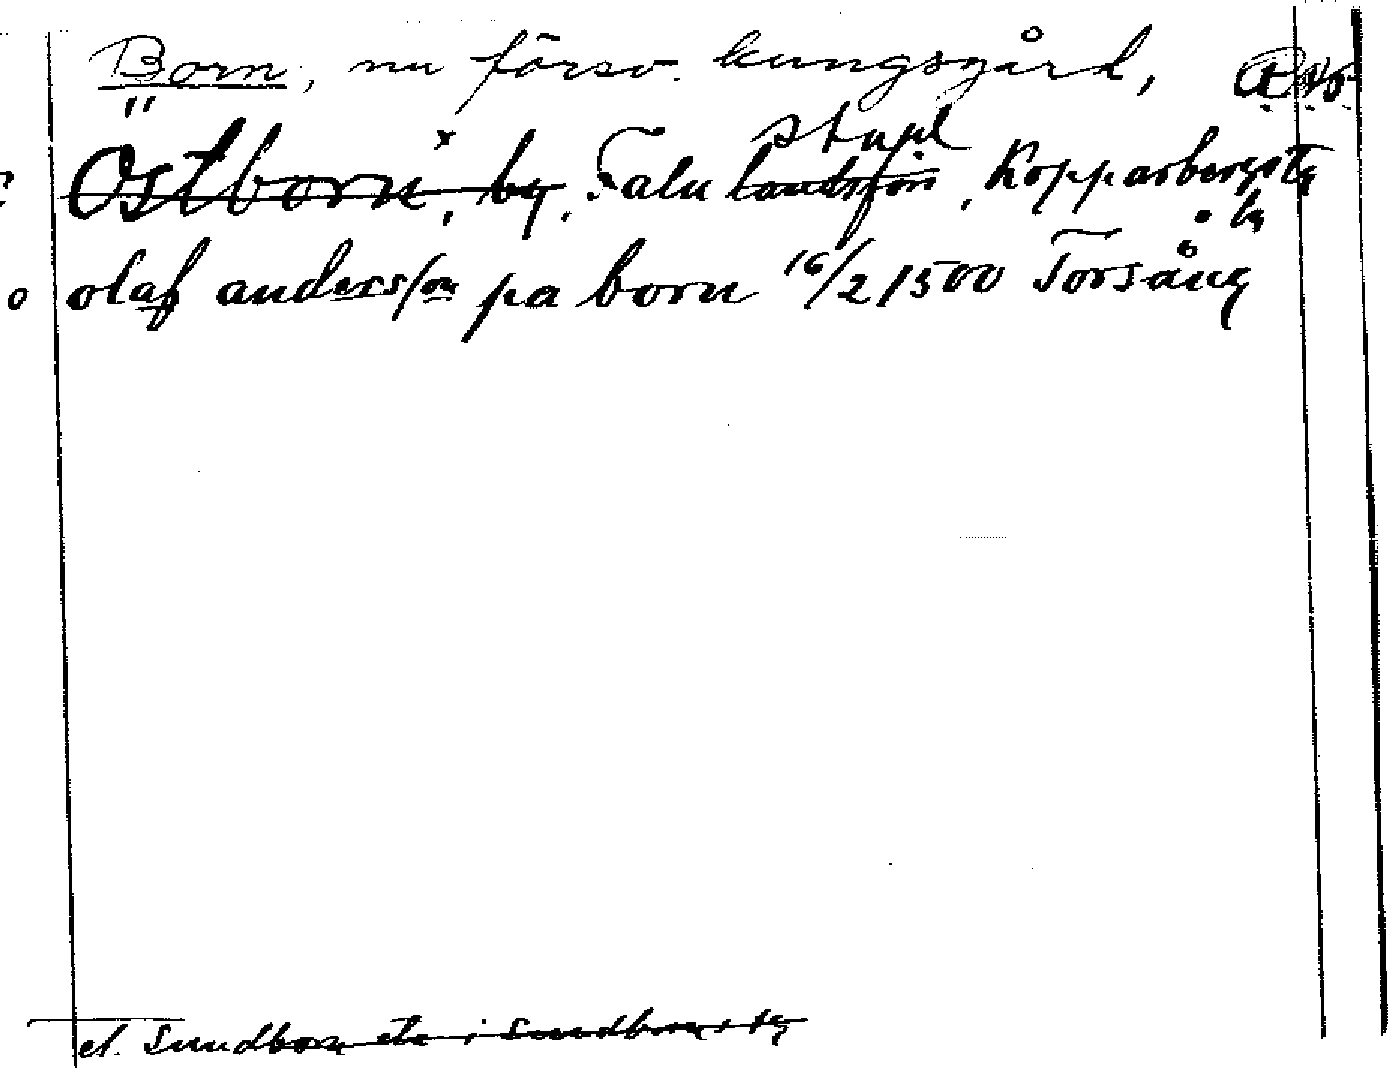 Born, nu försv. kungsgård,
stupl
Östborn, by, Falu landsförs., Kopparbergs
olaf andersson pa born 16/2 1500 Torsång
el. Sundborn etc i Sundborns